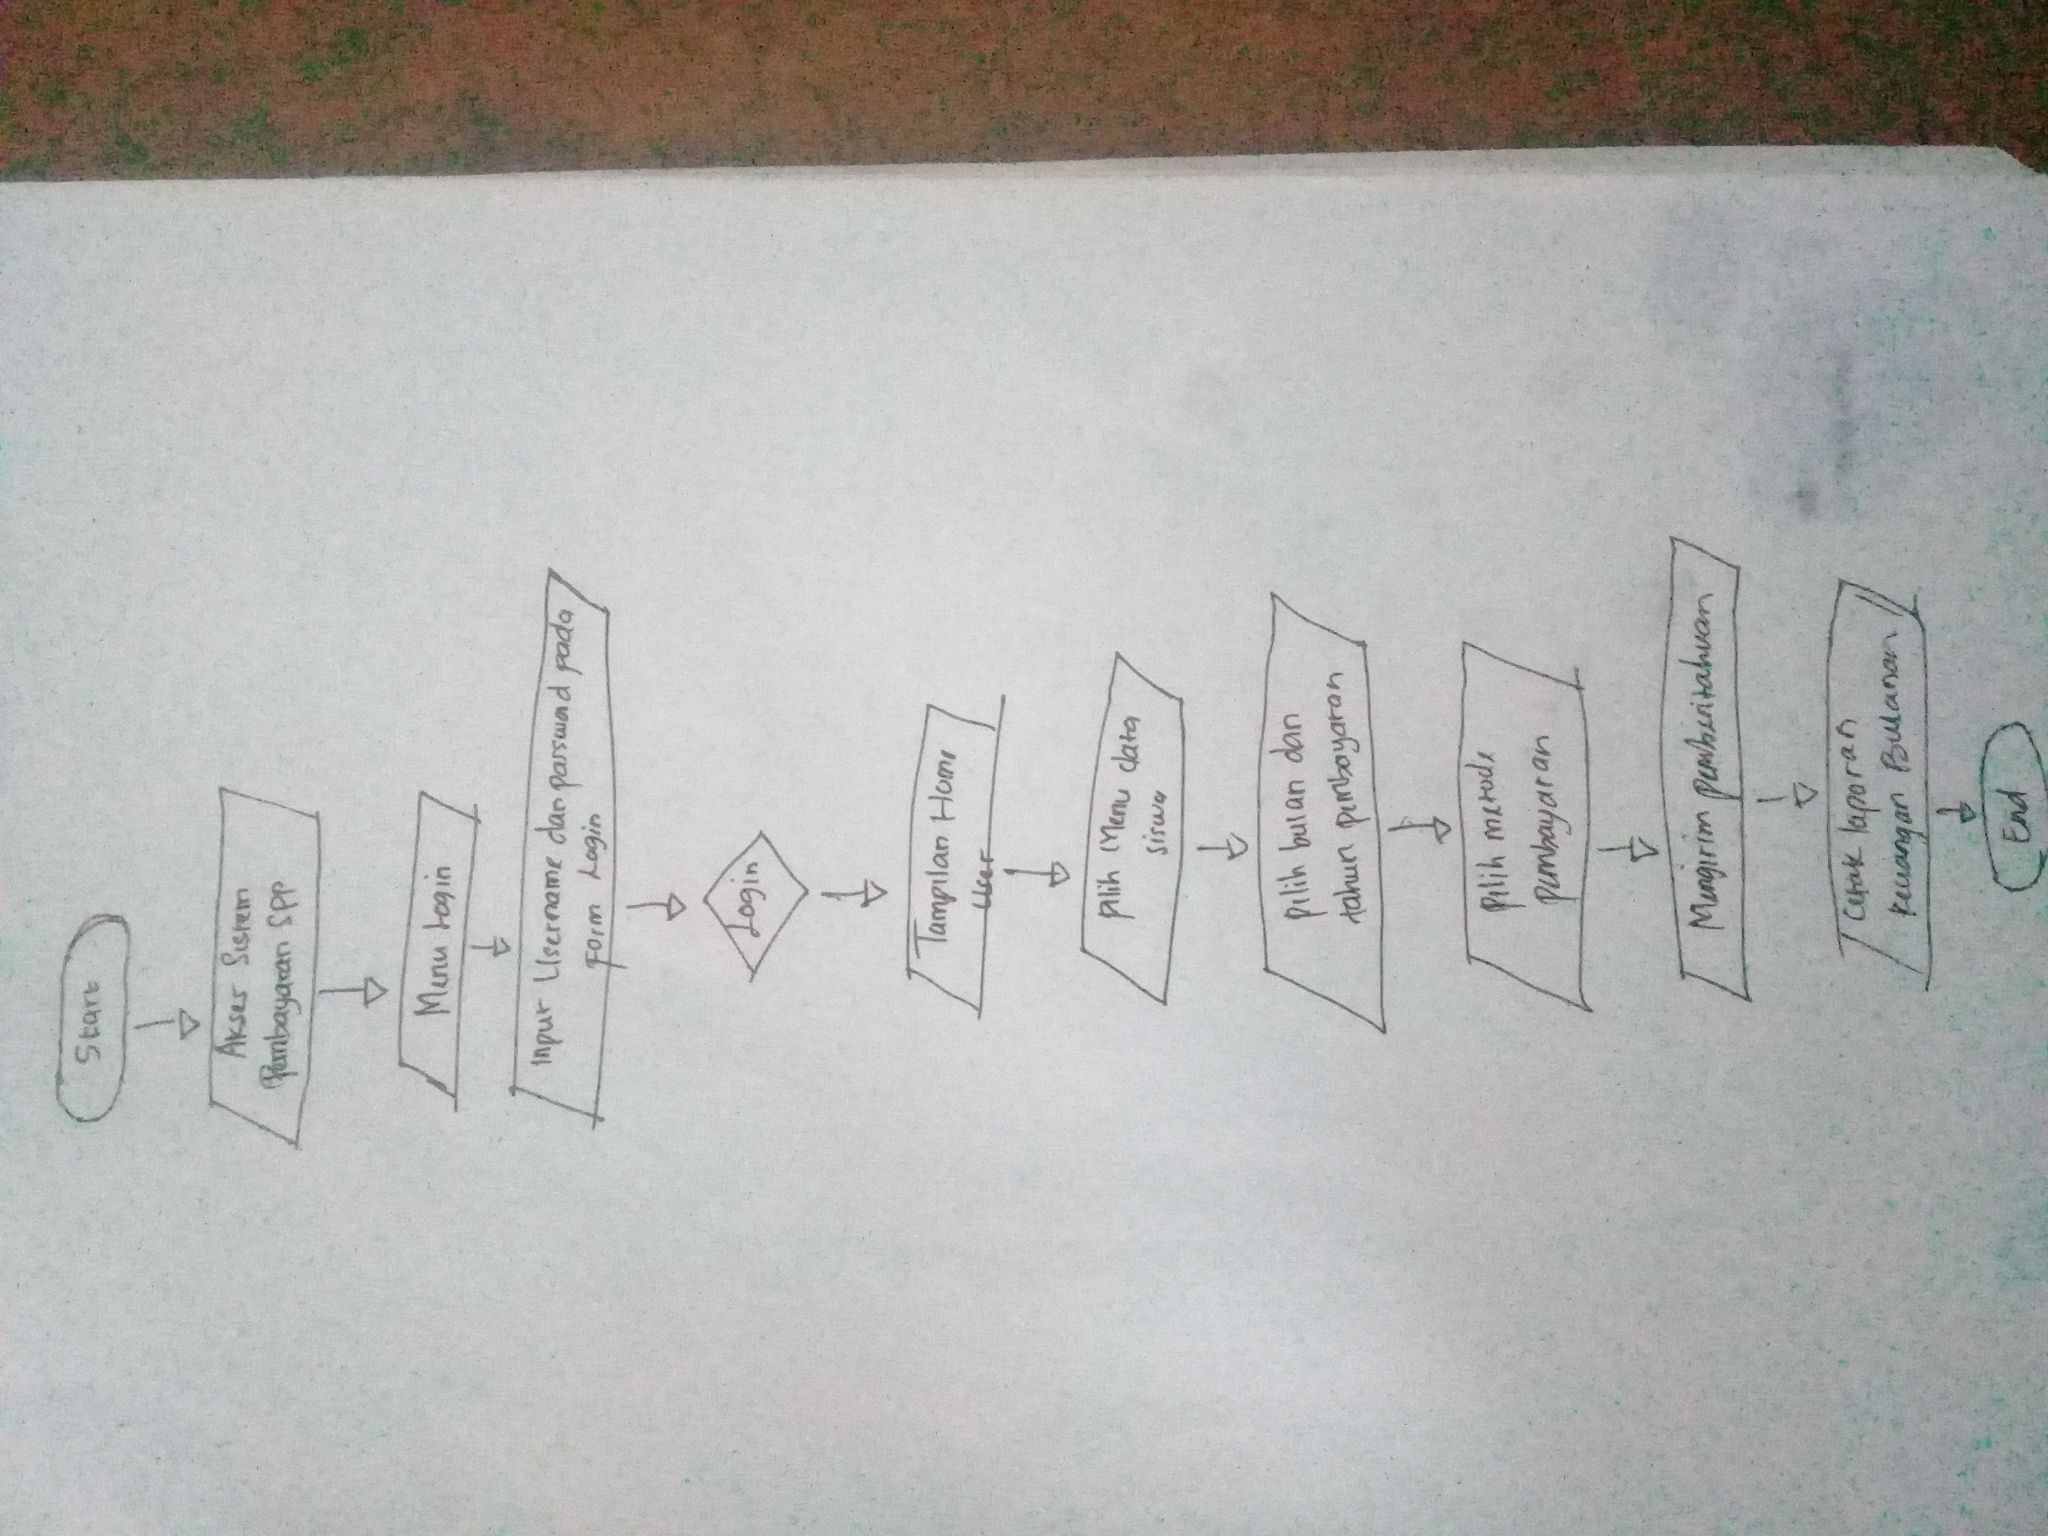 Start
Akses Sistem
Pembayaran SPP
Menu Login
Input Username dan password pada
Form Login
Login
Tampilan Home
User
pilih Menu data
siswa
pilih bulan dan
tahun pembayaran
pilih metode
pembayaran
Mengirim pemberitahuan
Cetak laporan
keuangan Bulanan
End